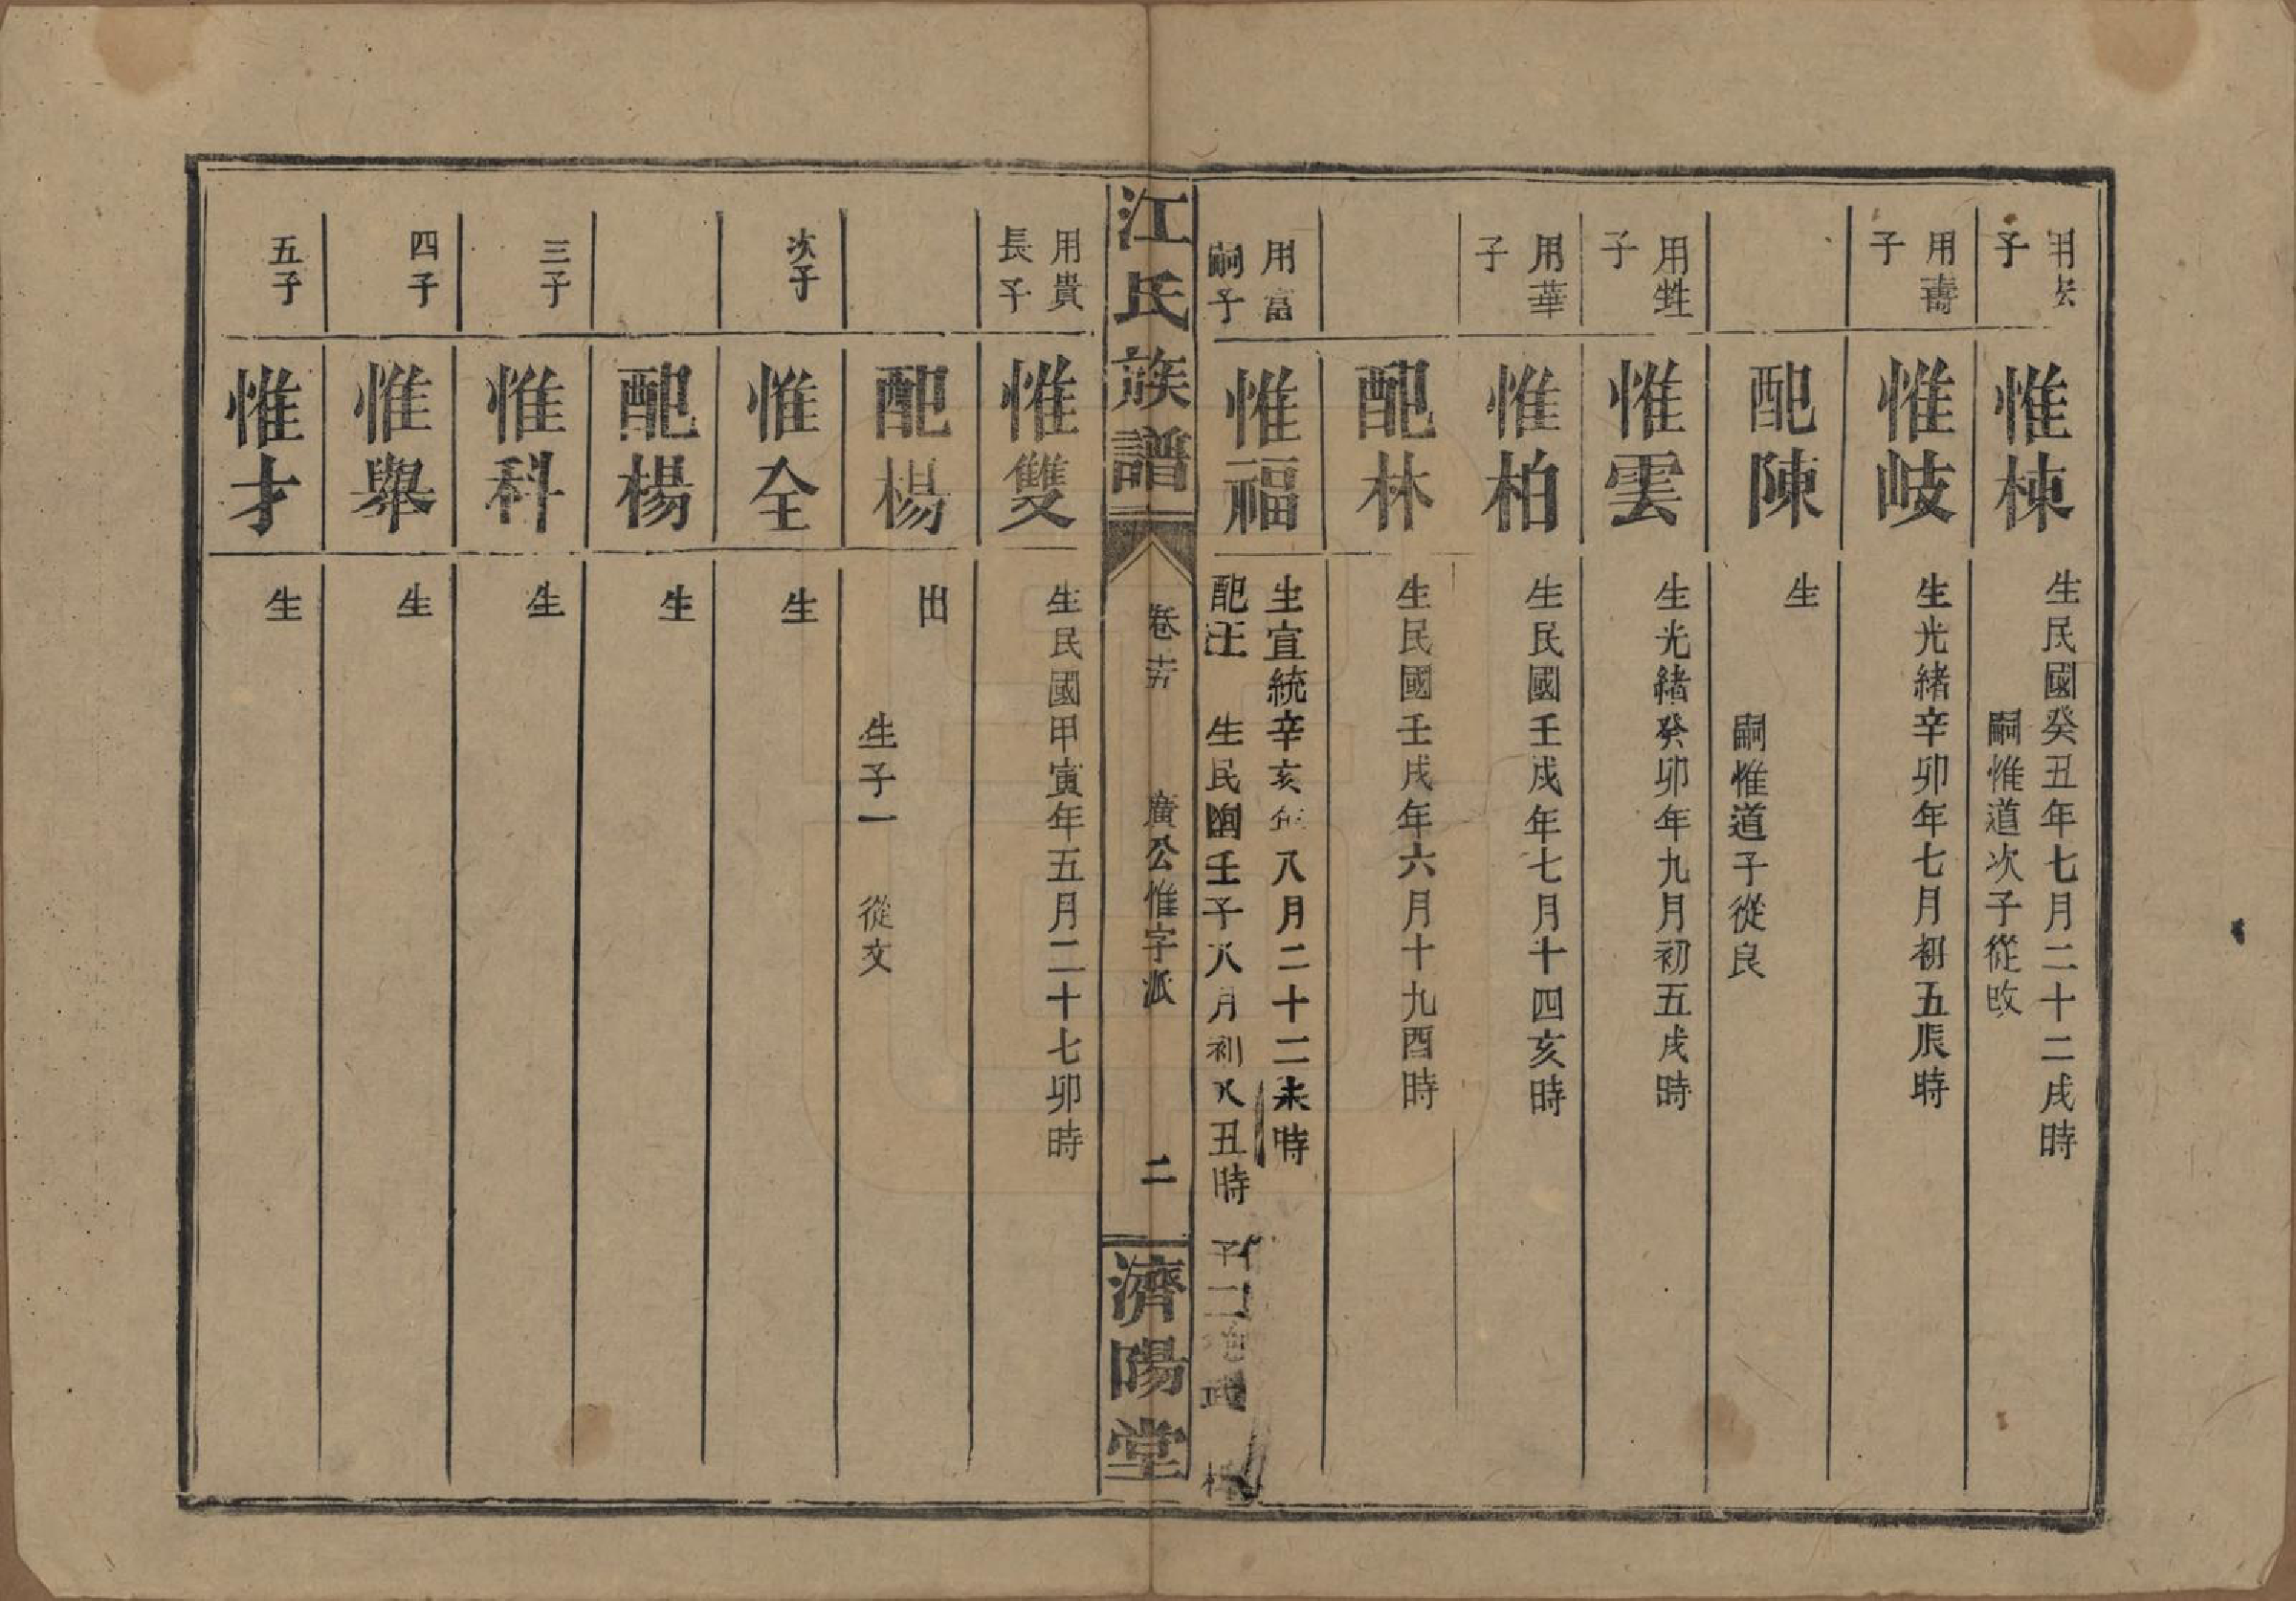 子
惟棟
生民國癸丑年七月二十二戌時
嗣惟道次子從政
用壽
子
惟岐
生光緒辛卯年七月初五辰時
配陳
生
嗣惟道子從良
用牲
子
惟雲
生光緒癸卯年九月初五戌時
用華
子
惟柏
生民國壬戌年七月十四亥時
配林
生民國壬戌年六月十九酉時
用富
嗣子
惟福
生宣統辛亥年八月二十二未時
配汪 生民國壬子八月初八丑時 子二 武
江氏族譜 卷廿五 廣公惟字派 二 濟陽堂
用貴
長子
惟雙
生民國甲寅年五月二十七卯時
配楊
出
生子一 從文
次子
惟全
生
配楊
生
三子
惟科
生
四子
惟舉
生
五子
惟才
生